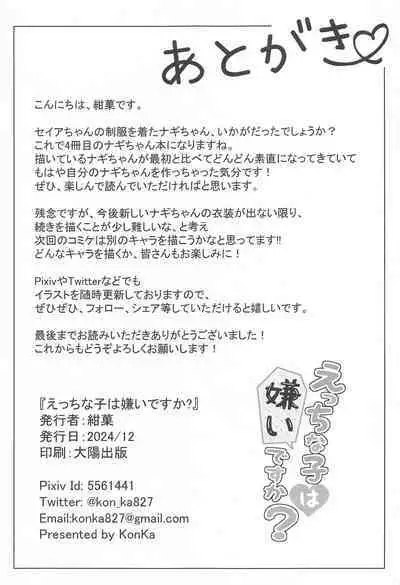 あとがき♡
こんにちは、紺菓です。
セイアちゃんの制服を着たナギちゃん、いかがだったでしょうか？
これで4冊目のナギちゃん本になりますね。
描いているナギちゃんが最初と比べてどんどん素直になってきていて
もはや自分のナギちゃんを作っちゃった気分です！
ぜひ、楽しんで読んでいただければと思います。
残念ですが、今後新しいナギちゃんの衣装が出ない限り、
続きを描くことが少し難しいな、と考え
次回のコミケは別のキャラを描こうかなと思ってます!!
どんなキャラを描くか、皆さんもお楽しみに！
PixivやTwitterなどでも
イラストを随時更新しておりますので、
ぜひぜひ、フォロー、シェア等していただけると嬉しいです。
最後までお読みいただきありがとうございました！
これからもどうぞよろしくお願いします！
『えっちな子は嫌いですか?』
発行者:紺菓
発行日:2024/12
印刷:大陽出版
Pixiv Id: 5561441
Twitter: @kon_ka827
Email:konka827@gmail.com
Presented by KonKa
えっちな子は
嫌い
ですか？